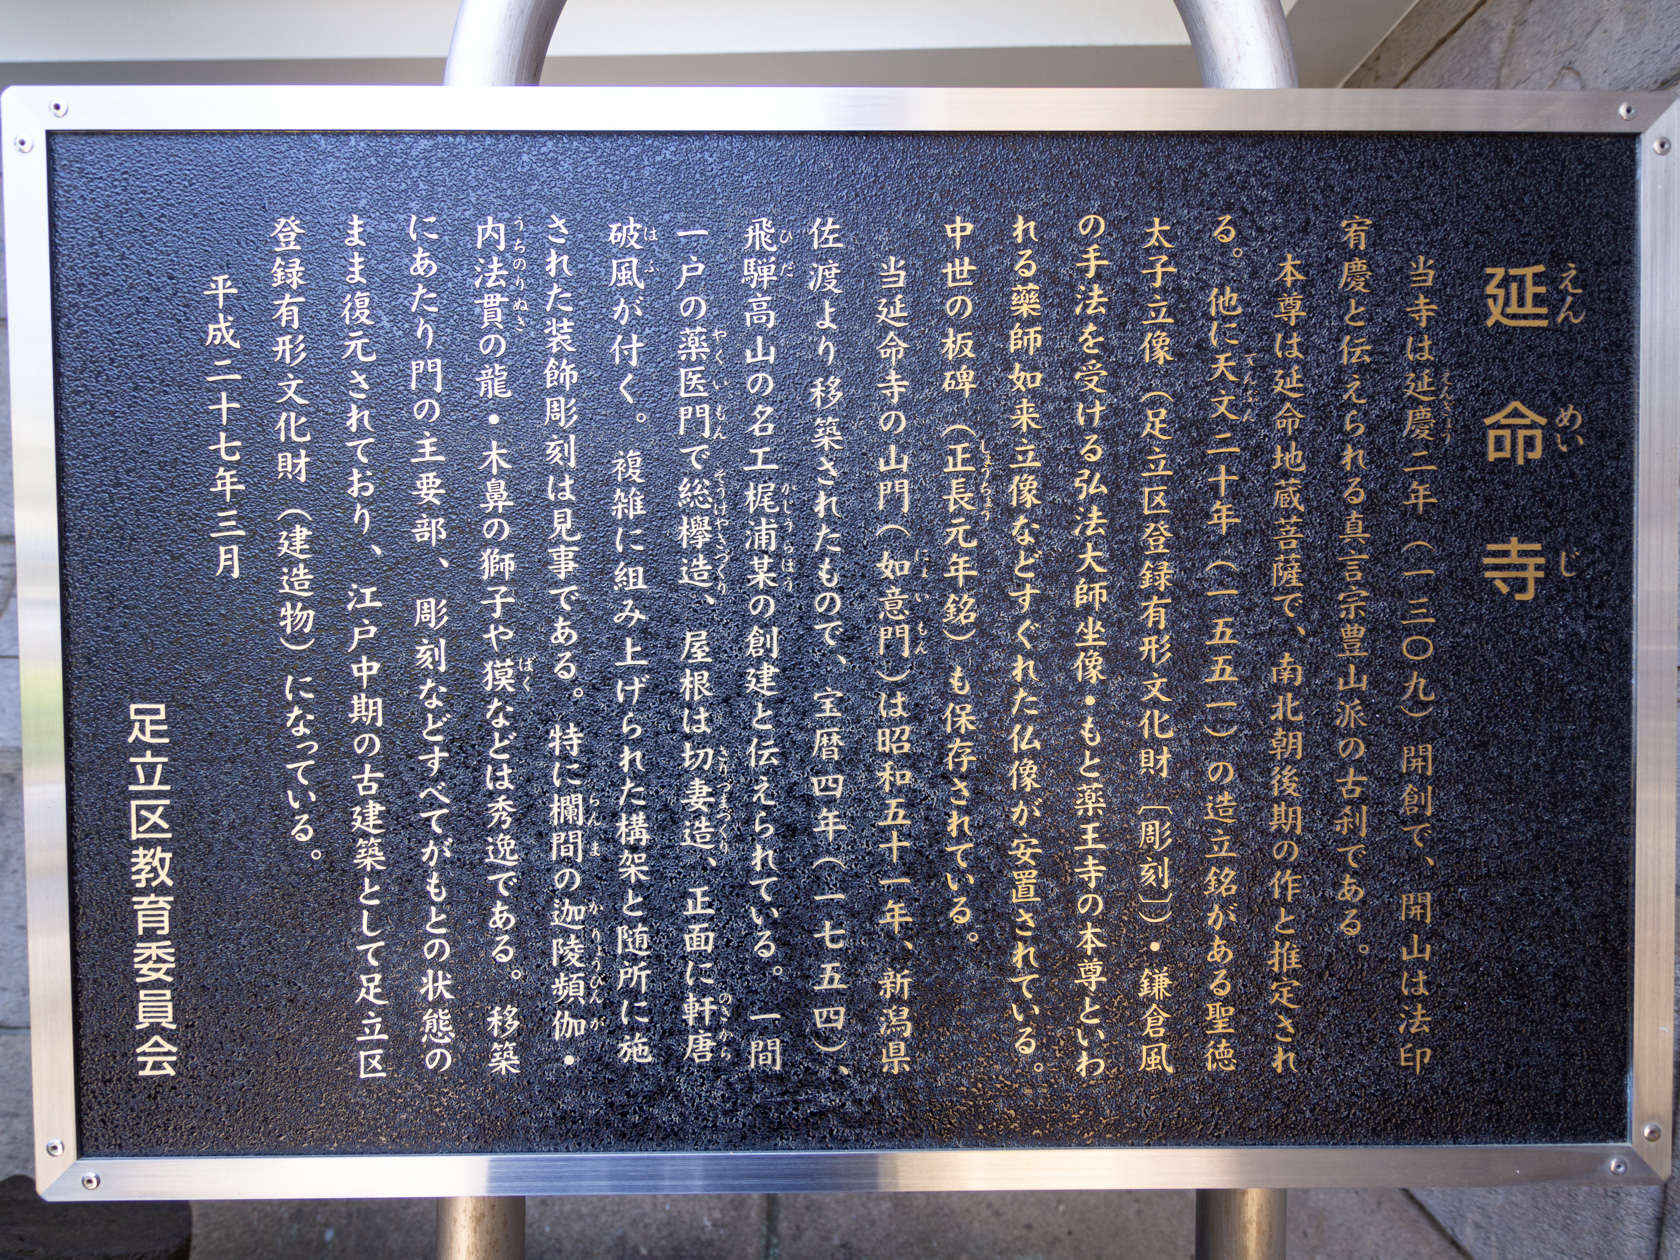 延命寺
えんめいじ
当寺は延慶二年（一三〇九）開創で、開山は法印
えんきょう
宥慶と伝えられる真言宗豊山派の古刹である。
本尊は延命地蔵菩薩で、南北朝後期の作と推定され
る。他に天文二十年（一五五一）の造立銘がある聖徳
てんぶん
太子立像（足立区登録有形文化財〔彫刻〕）・鎌倉風
の手法を受ける弘法大師坐像・もと薬王寺の本尊といわ
れる藥師如来立像などすぐれた仏像が安置されている。
中世の板碑（正長元年銘）も保存されている。
しょうちょう
当延命寺の山門（如意門）は昭和五十一年、新潟県
にょいもん
佐渡より移築されたもので、宝暦四年（一七五四）、
飛騨高山の名工梶浦某の創建と伝えられている。一間
ひだ かじうらぼう
一戸の薬医門で総欅造、屋根は切妻造、正面に軒唐
やくいもん そうけやきづくり きりつまづくり のきから
破風が付く。複雑に組み上げられた構架と随所に施
はふ
された装飾彫刻は見事である。特に欄間の迦陵頻伽・
らんま かりょうびんが
内法貫の龍・木鼻の獅子や獏などは秀逸である。移築
うちのりぬき ばく
にあたり門の主要部、彫刻などすべてがもとの状態の
まま復元されており、江戸中期の古建築として足立区
登録有形文化財（建造物）になっている。
平成二十七年三月
足立区教育委員会